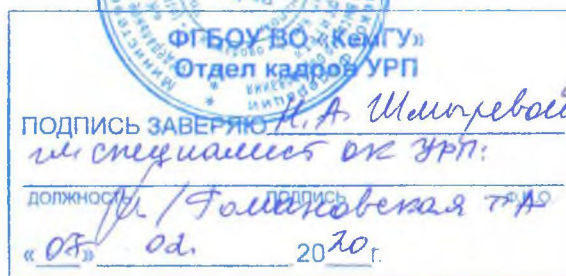 ФГБОУ ВО «КемГУ»
Отдел кадров УРП
ПОДПИСЬ ЗАВЕРЯЮ Н.А. Шмыревой
гл. специалист ОК УРП:
ДОЛЖНОСТЬ ПОДПИСЬ Ф.И.О.
/ Томановская
« 07 » 02. 2020 г.